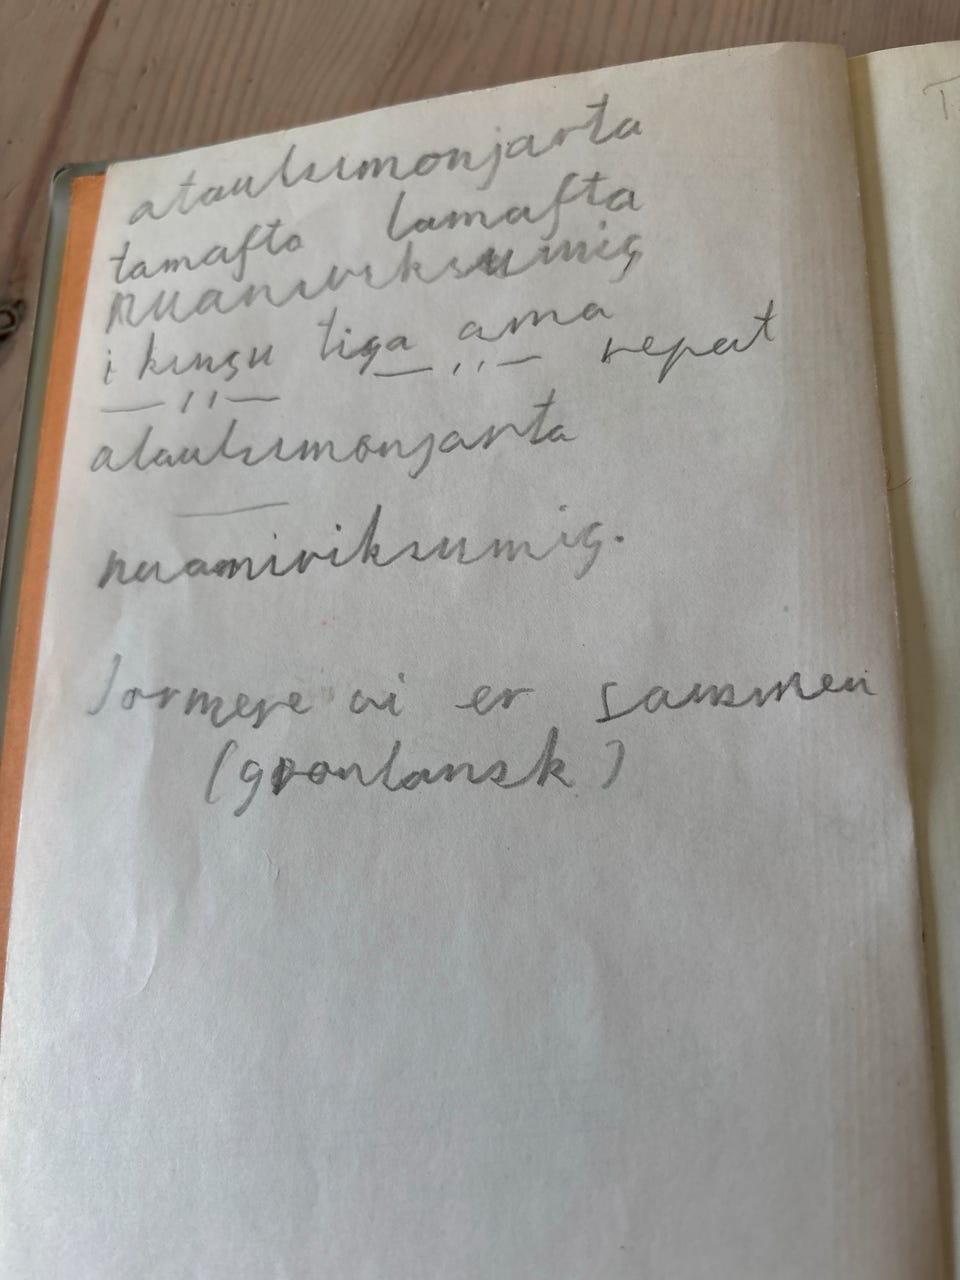 ataukumonjarta
tamafta lamafta
nuaniviksumig
i kungu tiga ama
— ,, — repeat
— ,, —
ataukumonjarta
nuamiviksumig.
Jo mere vi er sammen
(grønlansk)